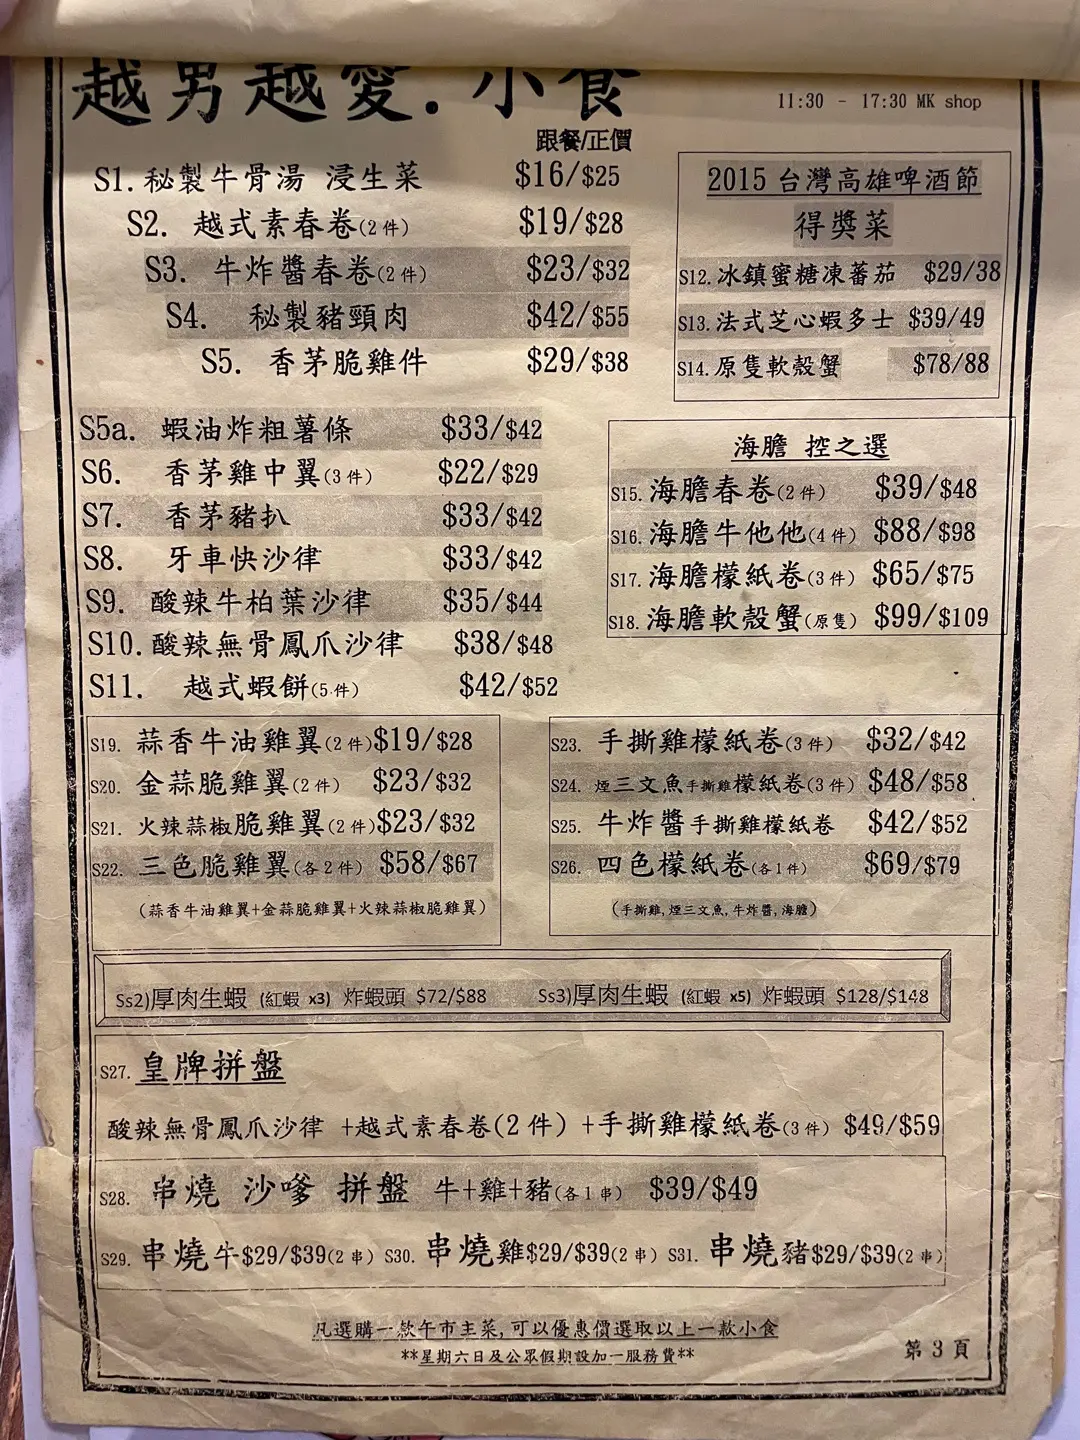 越男越愛.小食
11:30 - 17:30 MK shop
跟餐/正價
S1.秘製牛骨湯 浸生菜 $16/$25
S2. 越式素春卷(2件) $19/$28
S3. 牛炸醬春卷(2件) $23/$32
S4. 秘製豬頸肉 $42/$55
S5. 香茅脆雞件 $29/$38
2015 台灣高雄啤酒節
得獎菜
S12.冰鎮蜜糖凍蕃茄 $29/38
S13.法式芝心蝦多士 $39/49
S14.原隻軟殼蟹 $78/88
S5a. 蝦油炸粗薯條 $33/$42
S6. 香茅雞中翼(3件) $22/$29
S7. 香茅豬扒 $33/$42
S8. 牙車快沙律 $33/$42
S9. 酸辣牛柏葉沙律 $35/$44
S10.酸辣無骨鳳爪沙律 $38/$48
S11. 越式蝦餅(5件) $42/$52
海膽 控之選
S15.海膽春卷(2件) $39/$48
S16.海膽牛他他(4件) $88/$98
S17.海膽檬紙卷(3件) $65/$75
S18.海膽軟殼蟹(原隻) $99/$109
S19. 蒜香牛油雞翼(2件)$19/$28
S20. 金蒜脆雞翼(2件) $23/$32
S21. 火辣蒜椒脆雞翼(2件)$23/$32
S22. 三色脆雞翼(各2件) $58/$67
(蒜香牛油雞翼+金蒜脆雞翼+火辣蒜椒脆雞翼)
S23. 手撕雞檬紙卷(3件) $32/$42
S24. 煙三文魚手撕雞檬紙卷(3件) $48/$58
S25. 牛炸醬手撕雞檬紙卷 $42/$52
S26. 四色檬紙卷(各1件) $69/$79
(手撕雞,煙三文魚,牛炸醬,海膽)
Ss2)厚肉生蝦 (紅蝦 x3) 炸蝦頭 $72/$88 Ss3)厚肉生蝦 (紅蝦 x5) 炸蝦頭 $128/$148
S27.皇牌拼盤
酸辣無骨鳳爪沙律 +越式素春卷(2件) +手撕雞檬紙卷(3件) $49/$59
S28. 串燒 沙嗲 拼盤 牛+雞+豬(各1串) $39/$49
S29. 串燒牛$29/$39(2串) S30. 串燒雞$29/$39(2串) S31. 串燒豬$29/$39(2串)
凡選購一款午市主菜,可以優惠價選取以上一款小食
**星期六日及公眾假期設加一服務費**
第3頁